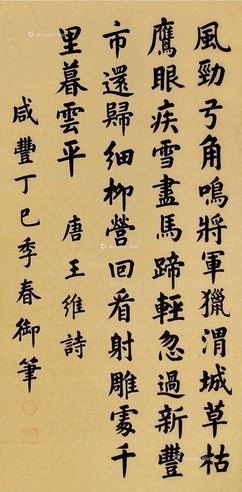 風勁弓角鳴將軍獵渭城草枯
鷹眼疾雪盡馬蹄輕忽過新豐
市還歸細柳營回看射雕處千
里暮雲平 唐王維詩
咸豐丁巳季春御筆